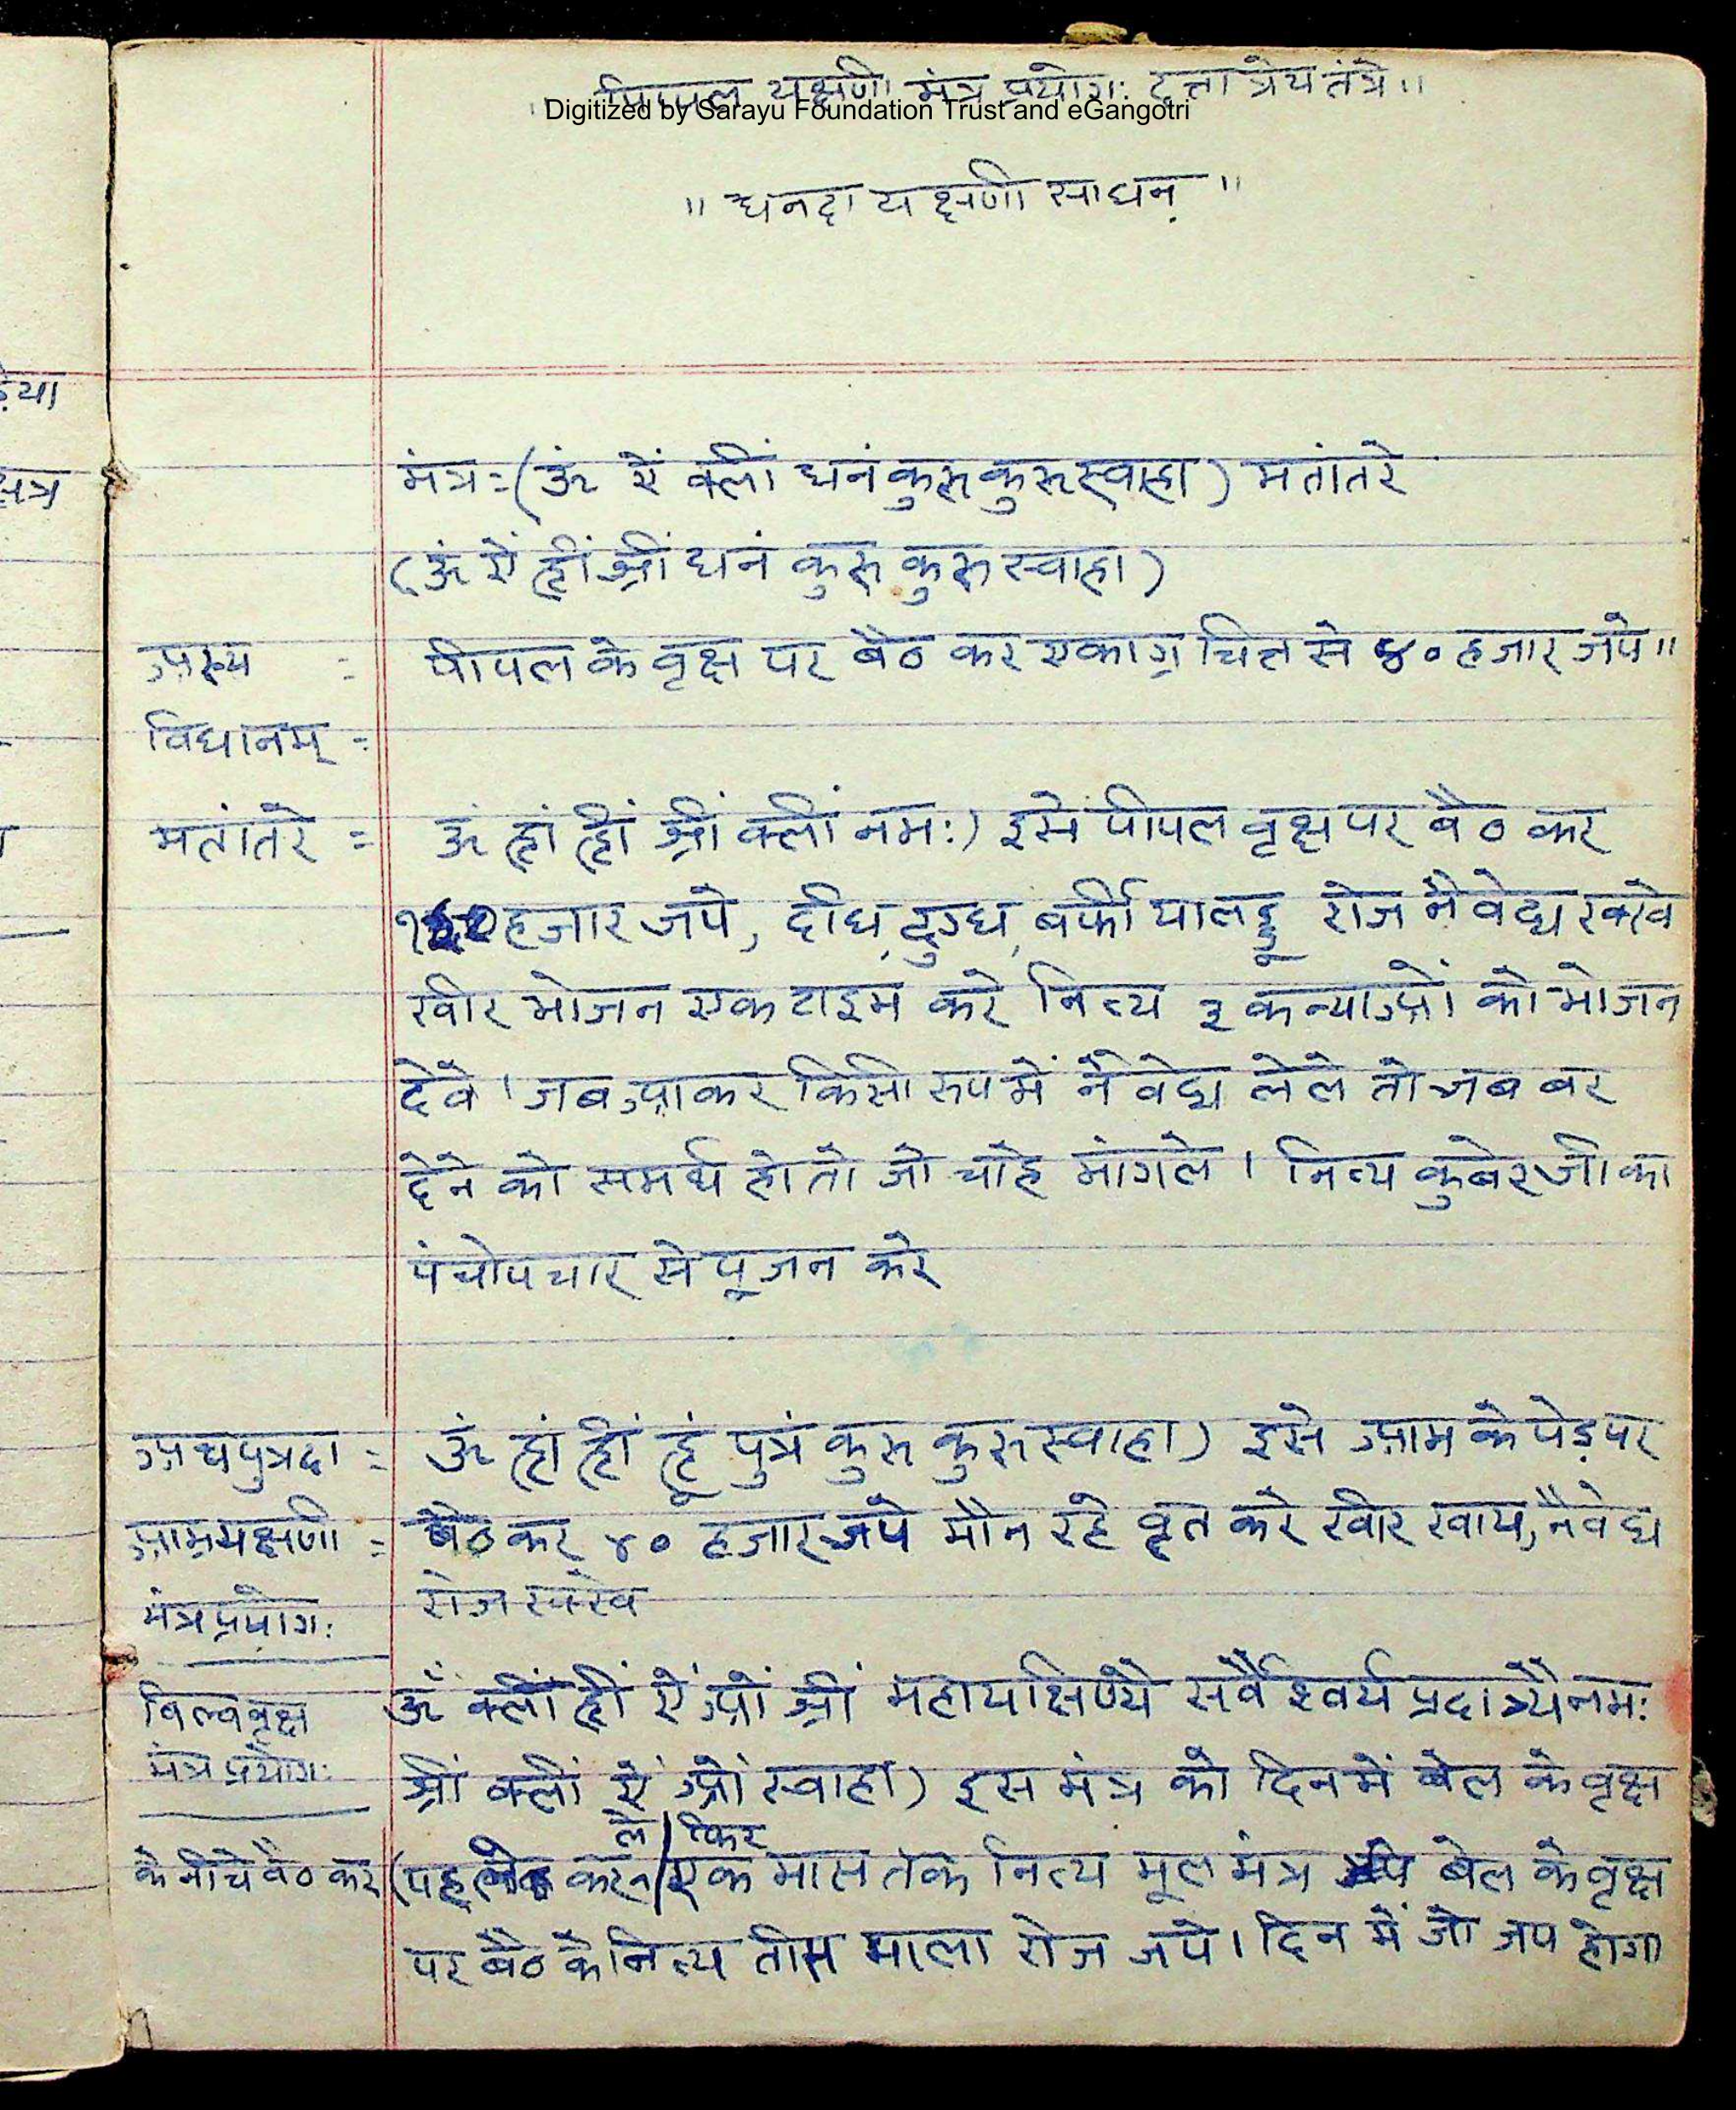 ॥ पिप्पल यक्षणी मंत्र प्रयोगः दत्तात्रेय तंत्रे॥
Digitized by Sarayu Foundation Trust and eGangotri
॥ धनदा यक्षणी साधन ॥
मंत्र=(ॐ ऐं क्लीं धनं कुरु कुरु स्वाहा) मतांतरे
(ॐ ऐं ह्रीं श्रीं धनं कुरु कुरु स्वाहा)
अस्य = पीपल के वृक्ष पर बैठ कर एकाग्र चित्त से ४० हजार जपे॥
विधानम् =
मतांतरे = ॐ ह्रां ह्रीं श्रीं क्लीं नमः) इसे पीपल वृक्ष पर बैठ कर
हजार जपे, दधि, दुग्ध, बर्फी या लड्डू रोज नैवेद्य रक्खे
खीर भोजन एक टाइम करे नित्य ३ कन्याओं को भोजन
देवे। जब आकर किसी रुप में नैवेद्य लेले तो जब बर
देने को समर्थ हो तो जो चाहे मांगले। नित्य कुबेर जी का
पंचोपचार से पूजन करे
अथ पुत्रदा = ॐ ह्रां ह्रीं ह्रूं पुत्रं कुरु कुरु स्वाहा) इसे आम के पेड़ पर
आम्रयक्षणी = बैठ कर ४० हजार जपे मौन रहे वृत करे खीर खाय, नैवेद्य
मंत्र प्रयोगः रोज रक्खे
विल्व वृक्ष ॐ क्लीं ह्रीं ऐं ओं श्रीं महायक्षिण्ये सर्वैश्वर्य प्रदात्र्यै नमः
मंत्र प्रयोगः श्रीं क्लीं ऐं ओं स्वाहा) इस मंत्र को दिन में बेल के वृक्ष
ले फिर
के नीचे बैठ कर (पह कर एक मास तक नित्य मूल मंत्र बेल के वृक्ष
पर बैठ के नित्य तीन माला रोज जपे। दिन में जो जप होगा